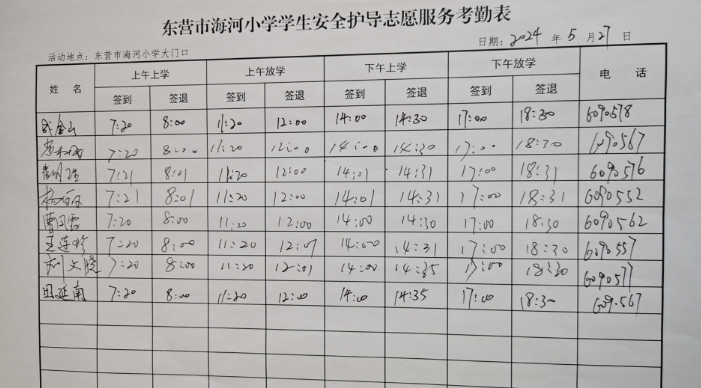 东营市海河小学学生安全护导志愿服务考勤表
日期: 2024 年 5 月 27 日
活动地点: 东营市海河小学大门口
姓名 上午上学 上午放学 下午上学 下午放学 电话
签到 签退 签到 签退 签到 签退 签到 签退
7:20 8:00 11:20 12:00 14:00 14:30 17:00 18:30 6090578
7:20 8:00 11:20 12:00 14:00 14:30 17:00 18:30 6090567
7:21 8:01 11:20 12:00 14:01 14:31 17:00 18:31 6090576
7:21 8:01 11:20 12:00 14:01 14:31 17:00 18:31 6090552
曹凤霞 7:20 8:00 11:20 12:00 14:00 14:30 17:00 18:30 6090562
王连珍 7:20 8:00 11:20 12:01 14:00 14:31 17:00 18:30 6090557
刘文晓 7:20 8:00 11:20 12:01 14:00 14:35 17:00 18:30 6090577
田延南 7:20 8:00 11:20 12:00 14:00 14:35 17:00 18:30 609.567